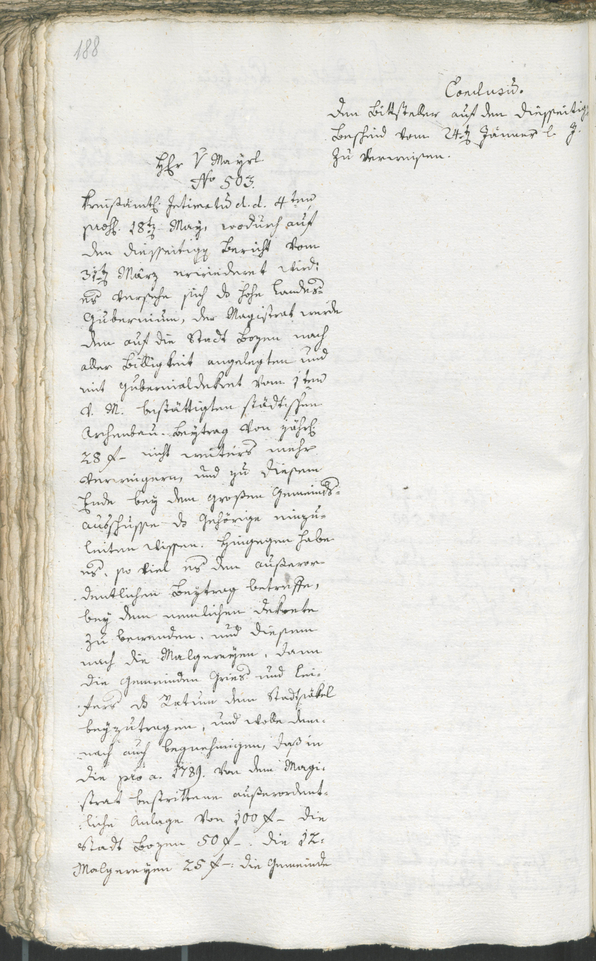 188
Conclusū.
Dem Bittsteller auf den diesseitig
Bescheid vom 24t. Jänner l. J.
zu verweisen.
Hr V Mayrl
No 503.
Kreisämtl. Intimatū d. d. 4ten
prs. 18t. May, wodurch auf
den diesseitigen Bericht vom
31t. März erwiederet wird:
es versehe sich das hohe Landes-
Gubernium, der Magistrat werde
den auf die Stadt Bozen nach
aller Billigkeit angelegten und
mit Gubernialdekret vom 1ten
v. M. bestättigten städtischen
Archenbau-Beytrag von jährl.
28 f– nicht weiters mehr
verweigern, und zu diesem
Ende bey dem großen Gemeinds-
ausschusse das gehörige einzu-
leiten wissen. Hingegen habe
es, so viel es den außeror-
dentlichen Beytrag betreffe,
bey dem nemlichen Dekrete
zu bewenden, und diesem
nach die Malgereyen, dann
die Gemeinden Gries und Lei-
fers das Ratum dem Stadtsäkel
beyzutragen, und wolle dem-
nach auch begnehmigen, daß in
die pro a. 1789. von dem Magi-
strat bestrittene außerordent-
liche Anlage von 100 f– die
Stadt Bozen 50 f–. die 12.
Malgereyen 25 f–: die Gemeinde